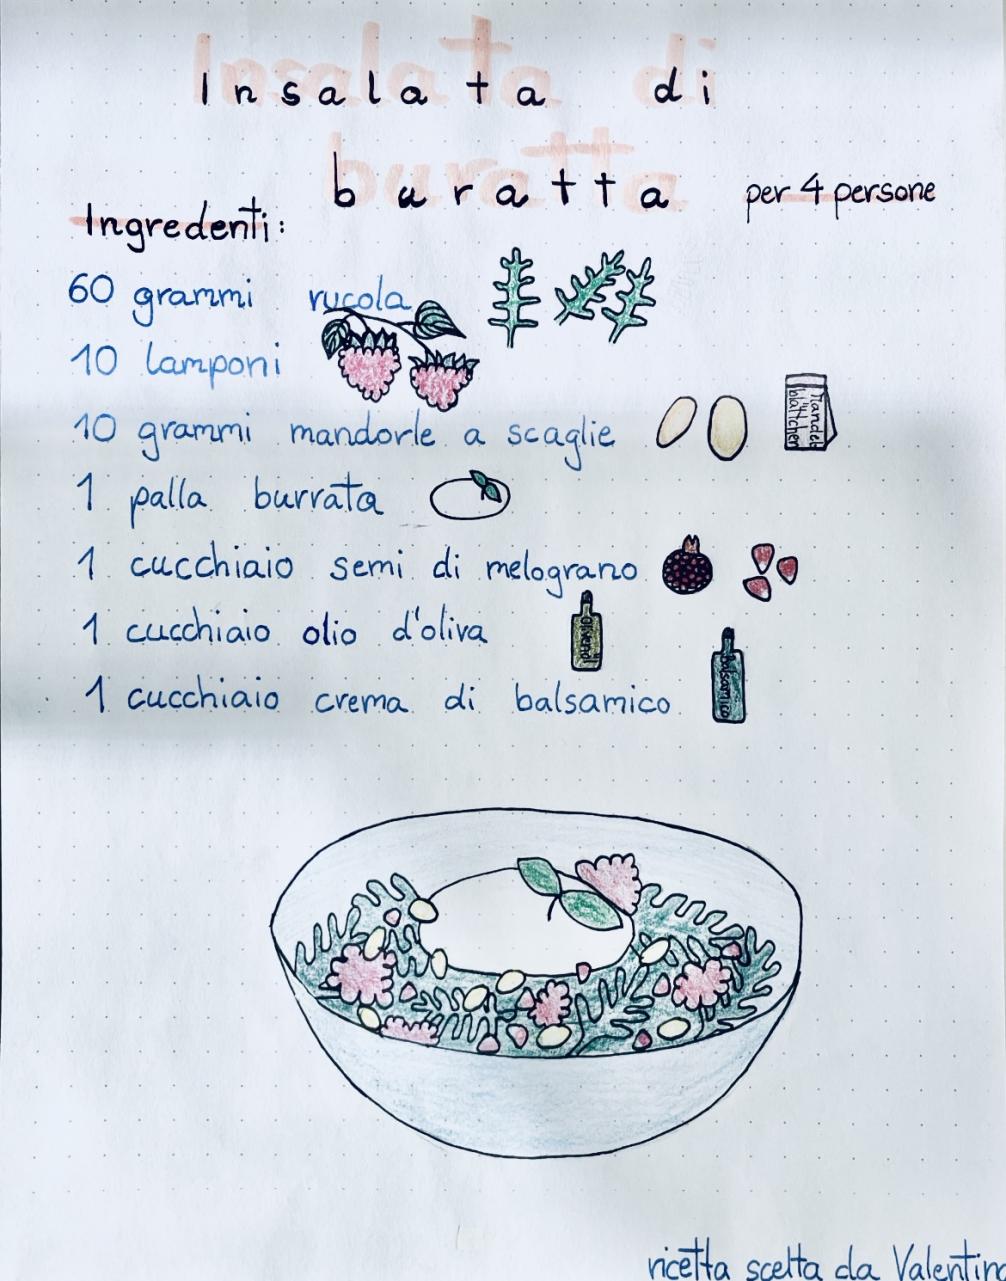 Insalata di
buratta
per 4 persone
Ingredenti:
60 grammi rucola
10 lamponi
10 grammi mandorle a scaglie
Mandel
blättchen
1 palla burrata
1 cucchiaio semi di melograno
1 cucchiaio olio d'oliva
Olivenöl
1 cucchiaio crema di balsamico
Balsamico
ricetta scelta da Valentin